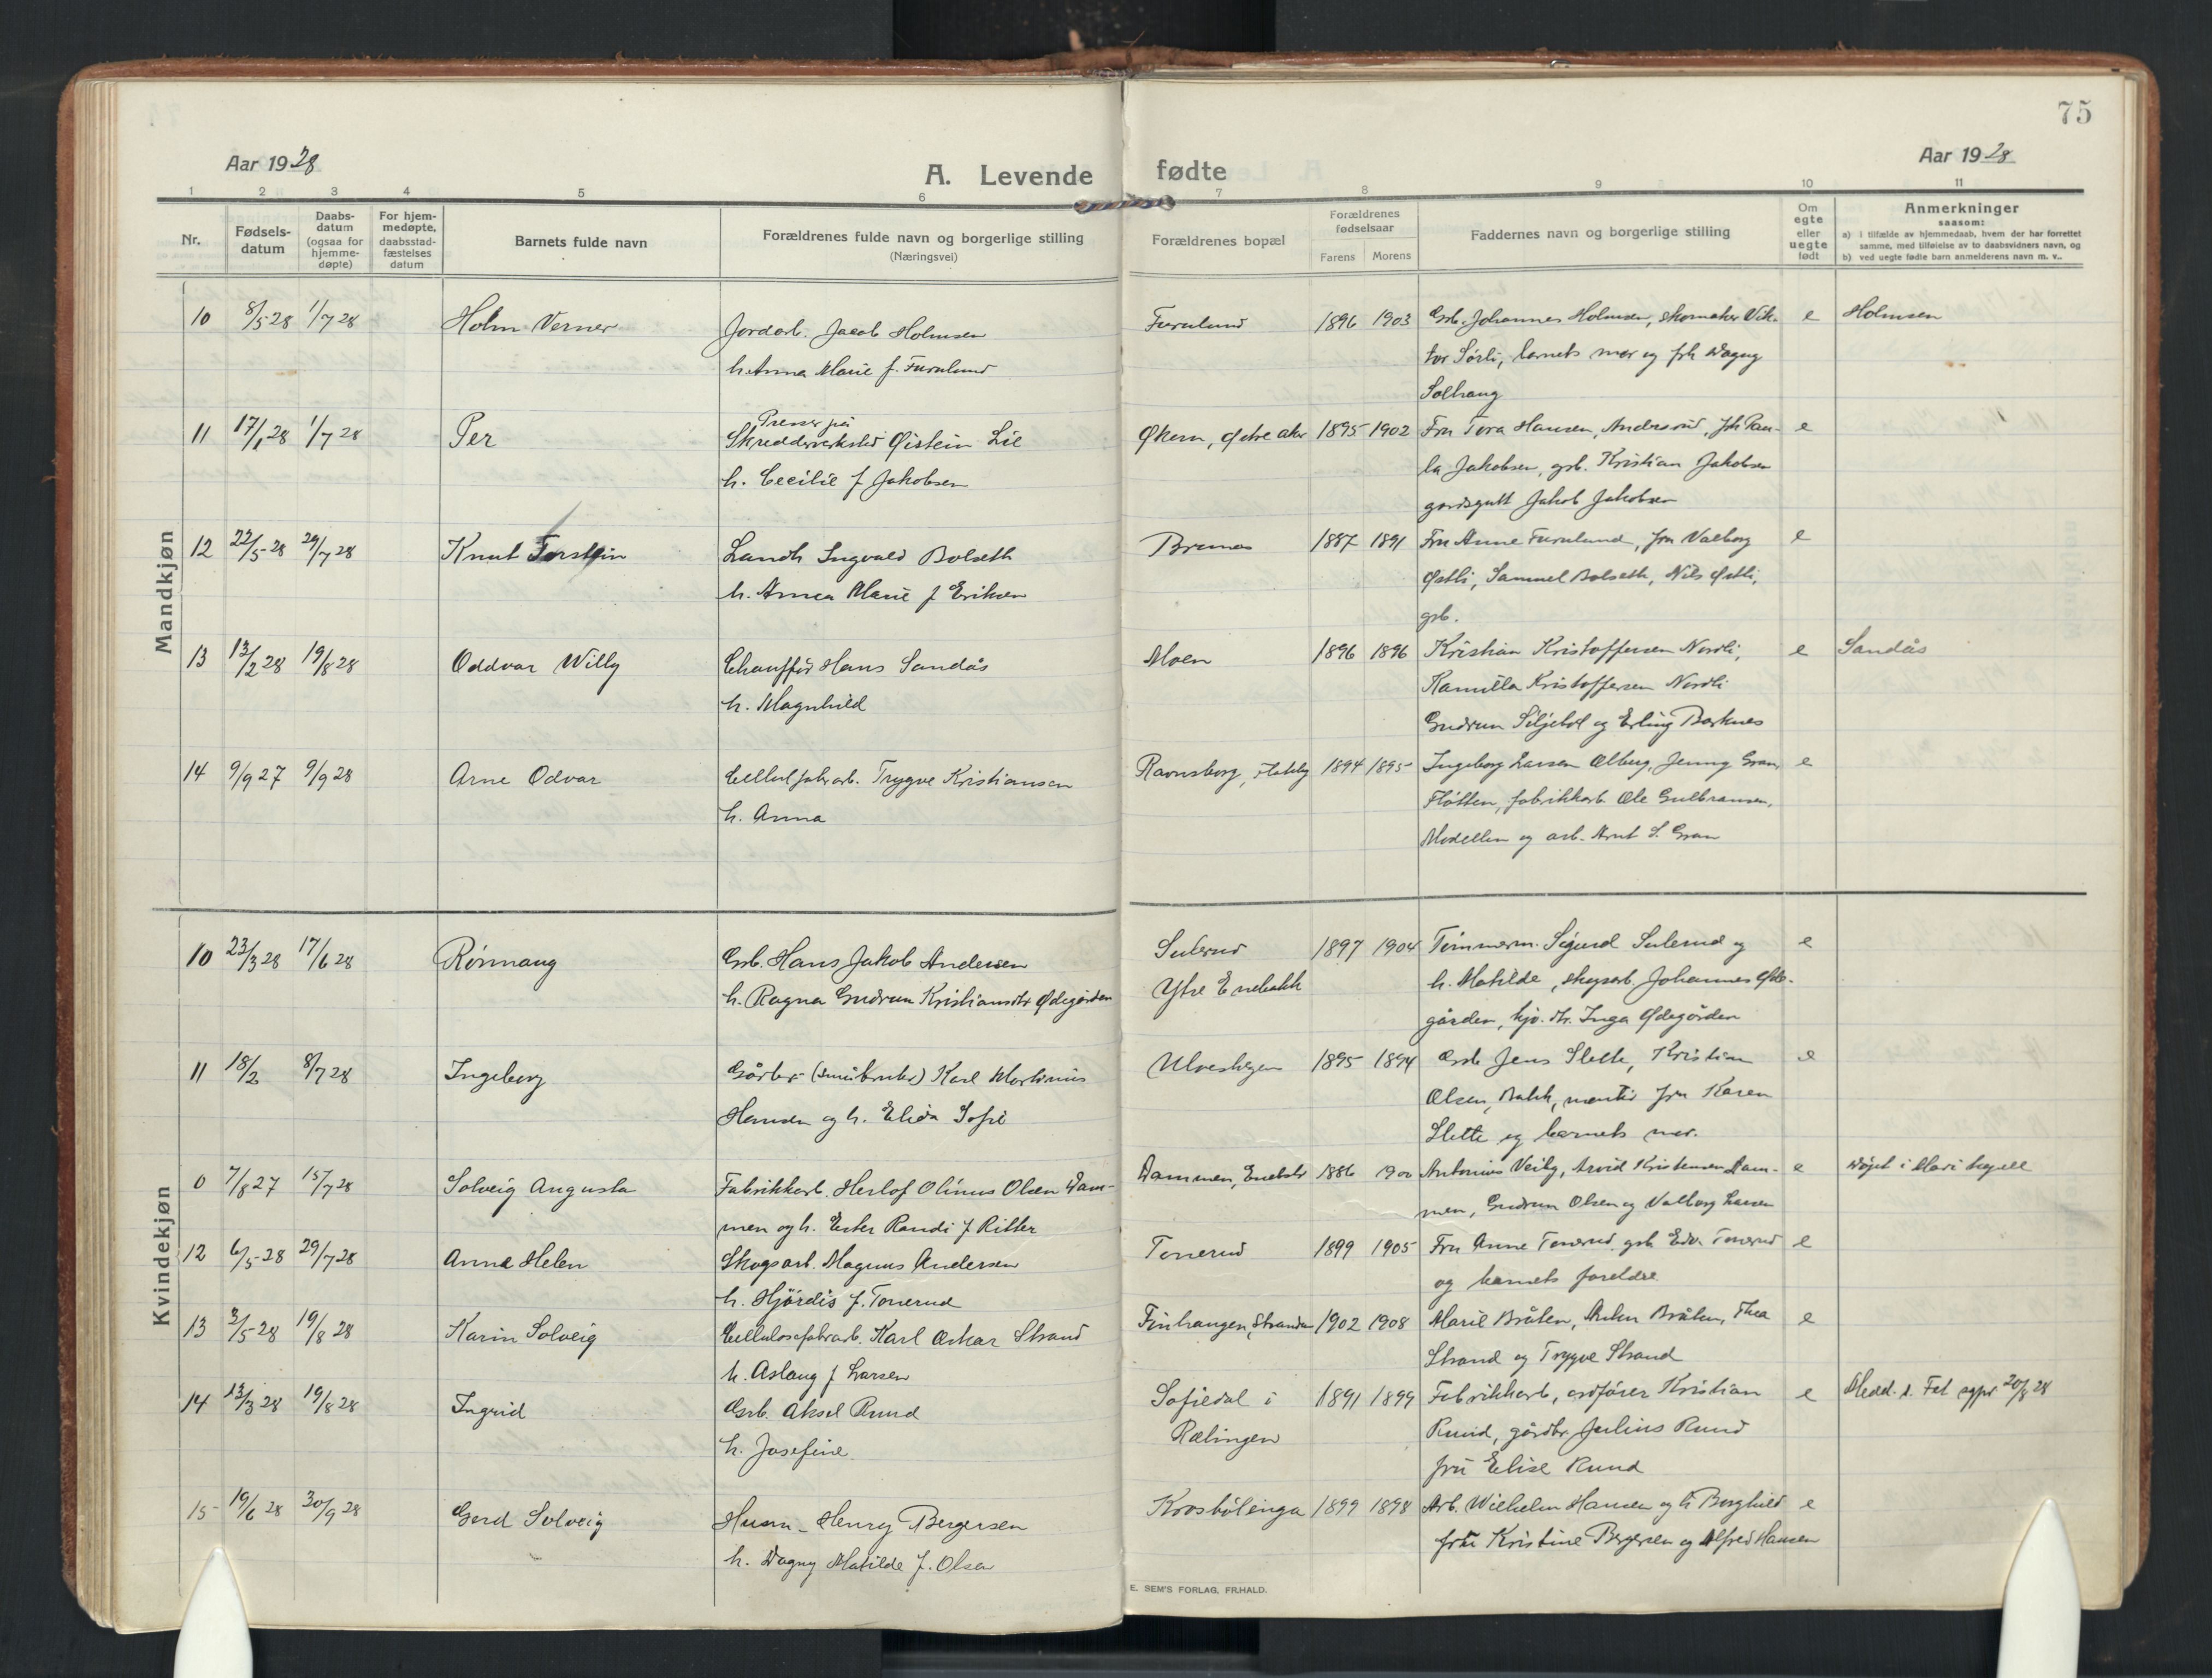 75
Aar 1928
A. Levende fødte
Aar 1928
1 2 3 4 5 6 7 8 9 10 11
Nr.
Fødsels-
datum
Daabs-
datum
(ogsaa for
hjemme-
døpte)
For hjem-
medøpte,
daabsstad-
fæstelses
datum
Barnets fulde navn
Forældrenes fulde navn og borgerlige stilling
(Næringsvei)
Forældrenes bopæl
Forældrenes
fødselsaar
Farens Morens
Faddernes navn og borgerlige stilling
Om
egte
eller
uegte
født
Anmerkninger
saasom:
a) i tilfælde av hjemmedaab, hvem der har forrettet
samme, med tilføielse av to daabsvidners navn, og
b) ved uegte fødte barn anmelderens navn m. v..
Mandkjøn
10 8/5 28 1/7 28 Holm Verner Jordarb. Jacob Holmsen Furulund 1896 1903 Grb. Johannes Holmsen, skomaker Vik- e Holmsen
h. Anna Marie f. Furulund tor Sørli, barnets mor og frk Dagny
Solhaug
Presser på
11 17/1 28 1/7 28 Per Skredderverksted Øistein Lie Økern, Østre aker 1895 1902 Fru Tora Hansen, Anderrud, frk Pau- e
h. Cecilie f Jakobsen la Jakobsen, grb. Kristian Jakobsen
gardsgutt Jakob Jakobsen
12 22/5 28 29/7 28 Knut Torstein Landh Ingvald Bolseth Brunes 1887 1891 Fru Anne Furulund, fru Valborg e
h. Anna Marie f Eriksen Østli, Samuel Bolseth, Nils Østli,
grb.
13 13/2 28 19/8 28 Oddvar Willy Chauffør Hans Sandås Moen 1896 1896 Kristian Kristoffersen Nordli, e Sandås
h. Magnhild Kamilla Kristoffersen Nordli
Gudrun Siljebol og Erling Børknes
14 9/9 27 9/9 28 Arne Odvar Cellulfabrarb. Trygve Kristiansen Ravnsborg, Flateby 1894 1895 Ingeborg Larsen Ølberg, Jenny Gran, e
h. Anna Fløtten, fabrikkarb. Ole Gulbransen,
Modellen og arb. Arnt S. Gran
Kvindekjøn
10 23/3 28 17/6 28 Rönnaug Grb. Hans Jakob Andersen Sulerud 1897 1904 Tømmerm. Sigurd Sulerud og e
h. Ragna Gudrun Kristiansdtr Ødegården Ytre Enebakk h. Matilde, skogsarb. Johannes Øde-
gården, kjv. dtr. Inga Ødegården
11 18/2 8/7 28 Ingeborg Gårbr. (småbruker) Karl Martinius 1895 1894 Grb Jens Slette, Kristian e
Hansen og h. Elida Sofie Olsen, Bakk, fru Karen
Slette og barnets mor.
0 7/8 27 15/7 28 Solveig Augusta Fabrikkarb. Herlof Olinus Olsen Dam- Dammen, Enebakk 1886 1900 Antonius Veiby, Arvid Kristensen Dam- e Døpt i Mari kapell
men og h. Ester Randi f Ritter men, Gudrun Olsen og Valborg Larsen
12 6/5 28 29/7 28 Anna Helen Skogsarb. Magnus Andersen Tonerud 1899 1905 Fru Anne Tonerud, grb Edv. Tonerud e
h. Hjördis f. Tonerud og barnets foreldre
13 3/5 28 19/8 28 Karin Solveig Cellulosefabrarb. Karl Oskar Strand Finhaugen, Stranden 1902 1908 Marie Bråten, Anton Bråten, Thea e
h. Aslaug f Larsen Strand og Trygve Strand
14 13/3 28 19/8 28 Ingrid Grb. Aksel Rund Sofiedal i 1891 1899 Fabrikkarb, ordfører Kristian e Medd. s. Fet sgpr 20/8 28
h. Josefine Rælingen Rund, gårdbr. Julius Rund
fru Elise Rund
15 19/6 28 30/9 28 Gerd Solveig Husm. Henry Bergersen Krosbølenga 1899 1898 Arb. Wilhelm Hansen og h Borghild e
h. Dagny Matilde f. Olsen frk Kristine Bergersen og Alfred Hansen
E. SEM'S FORLAG, FR.HALD.